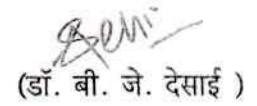 (डॉ. बी. जे. देसाई )